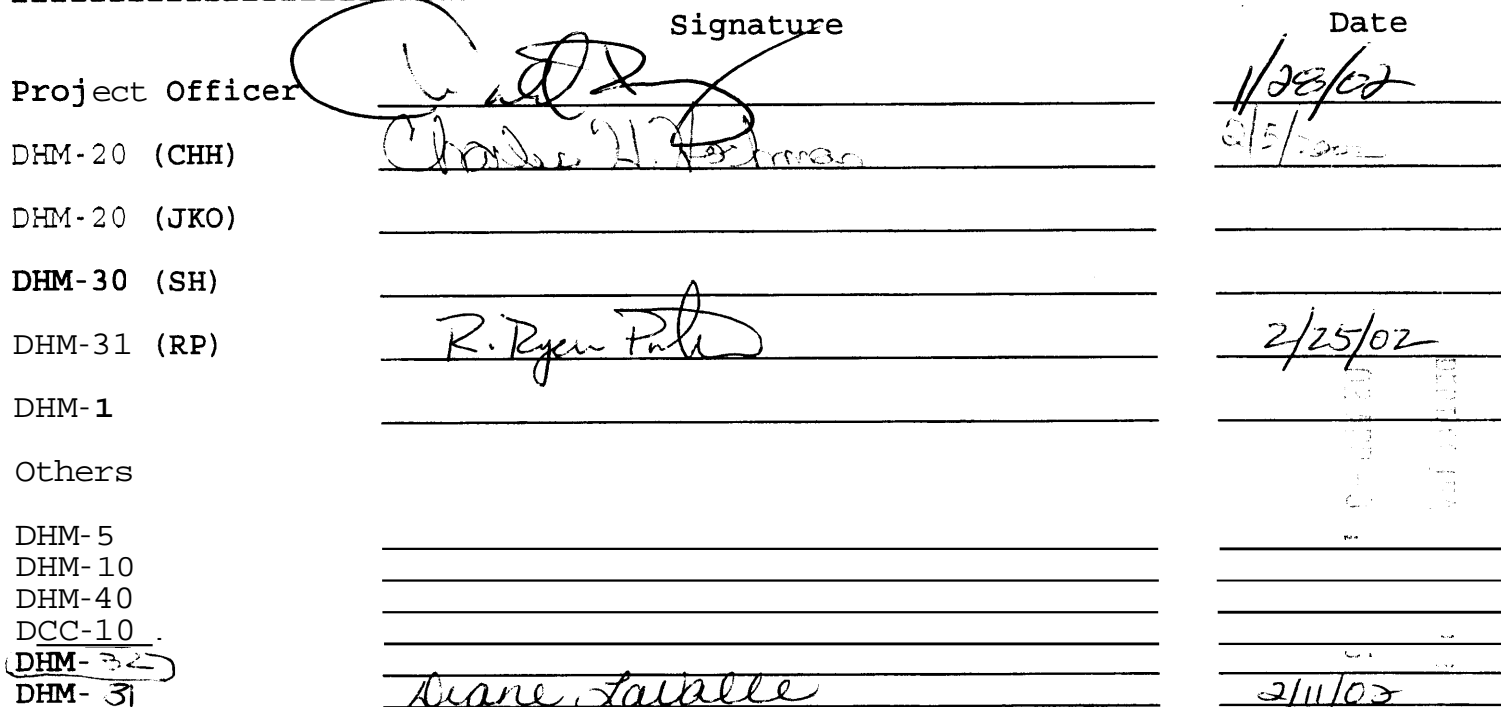 Signature Date
Project Officer 1/28/02
DHM-20 (CHH) Charles H. Hochman 2/5/2002
DHM-20 (JKO)
DHM-30 (SH)
DHM-31 (RP) R. Ryan 2/25/02
DHM-1
Others
DHM-5
DHM-10
DHM-40
DCC-10
DHM-32
DHM-31 Diane LaValle 2/11/02